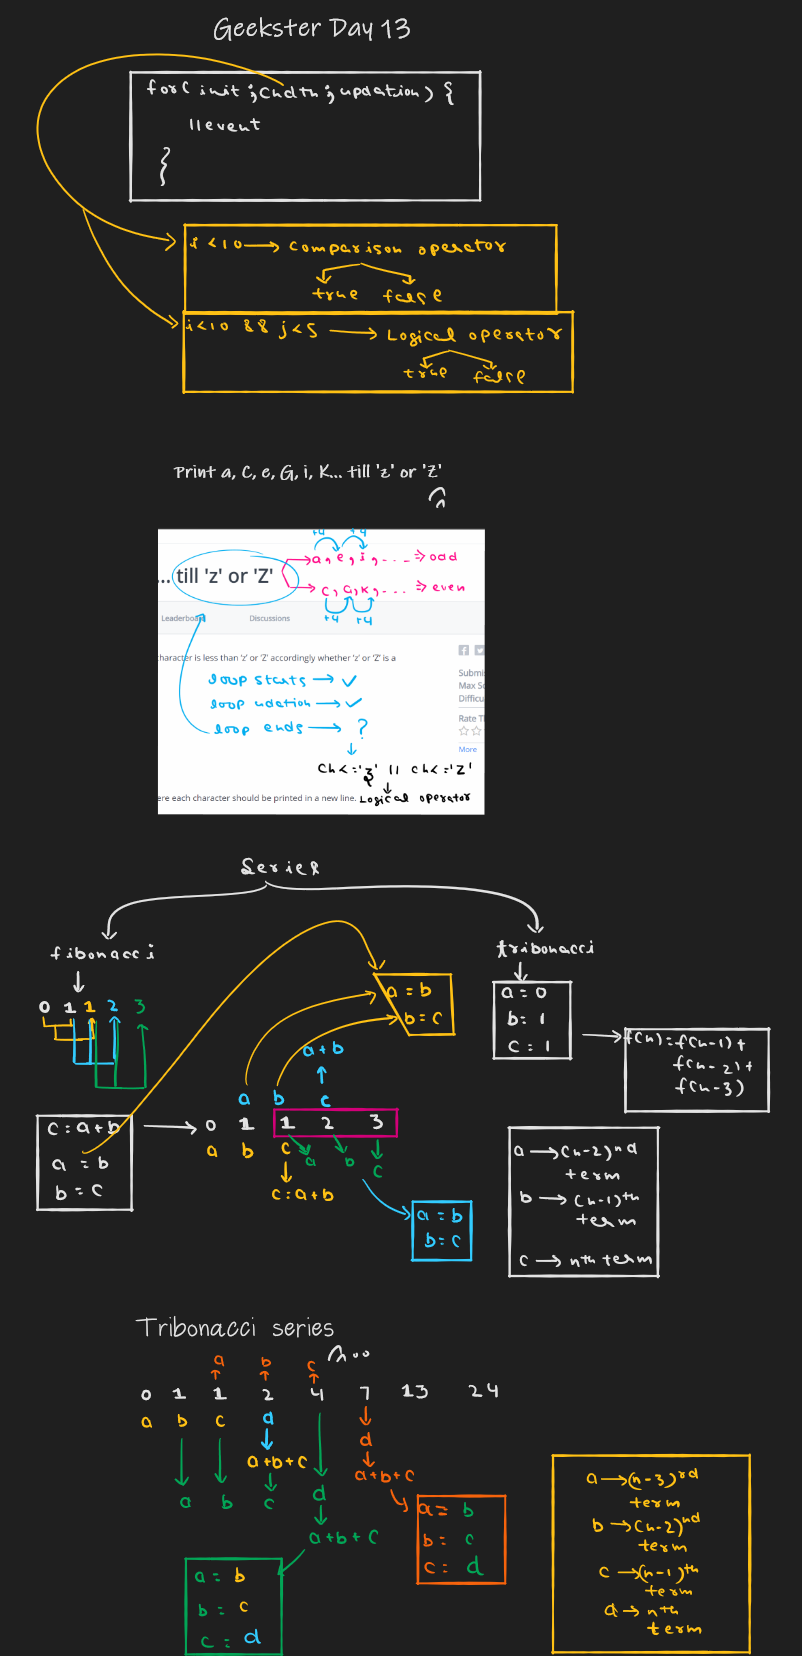 Geekster Day 13
for( init ; Cndtn ; updation) {
//event
}
i < 10 → Comparison operator
true false
i<10 && j<5 → Logical operator
true false
Print a, C, e, G, i, K... till 'z' or 'Z'
+4 +4
a, e, i, . . . . ⇒ odd
... till 'z' or 'Z'
C, G, K, . . . ⇒ even
+4 +4
Leaderboard Discussions
character is less than 'z' or 'Z' accordingly whether 'z' or 'Z' is a
Submi
Max Sc
Difficu
Rate T
More
loop starts → ✓
loop udation → ✓
loop ends → ?
Ch<='z' || ch<='Z'
ere each character should be printed in a new line.
Logical operator
Series
fibonacci
0 1 1 2 3
C = a+b
a = b
b = c
a = b
b = c
a+b
a b c
0 1 1 2 3
a b c
a b c
c = a+b
a = b
b = c
tribonacci
a = 0
b = 1
c = 1
f(n) = f(n-1) +
f(n-2) +
f(n-3)
a → (n-2)nd
term
b → (n-1)th
term
c → nth term
Tribonacci series
a b c
0 1 1 2 4 7 13 24
a b c d
a+b+c
d
a+b+c
a b c d
a+b+c
a = b
b = c
c = d
a = b
b = c
c = d
a → (n-3)rd
term
b → (n-2)nd
term
c → (n-1)th
term
d → nth
term